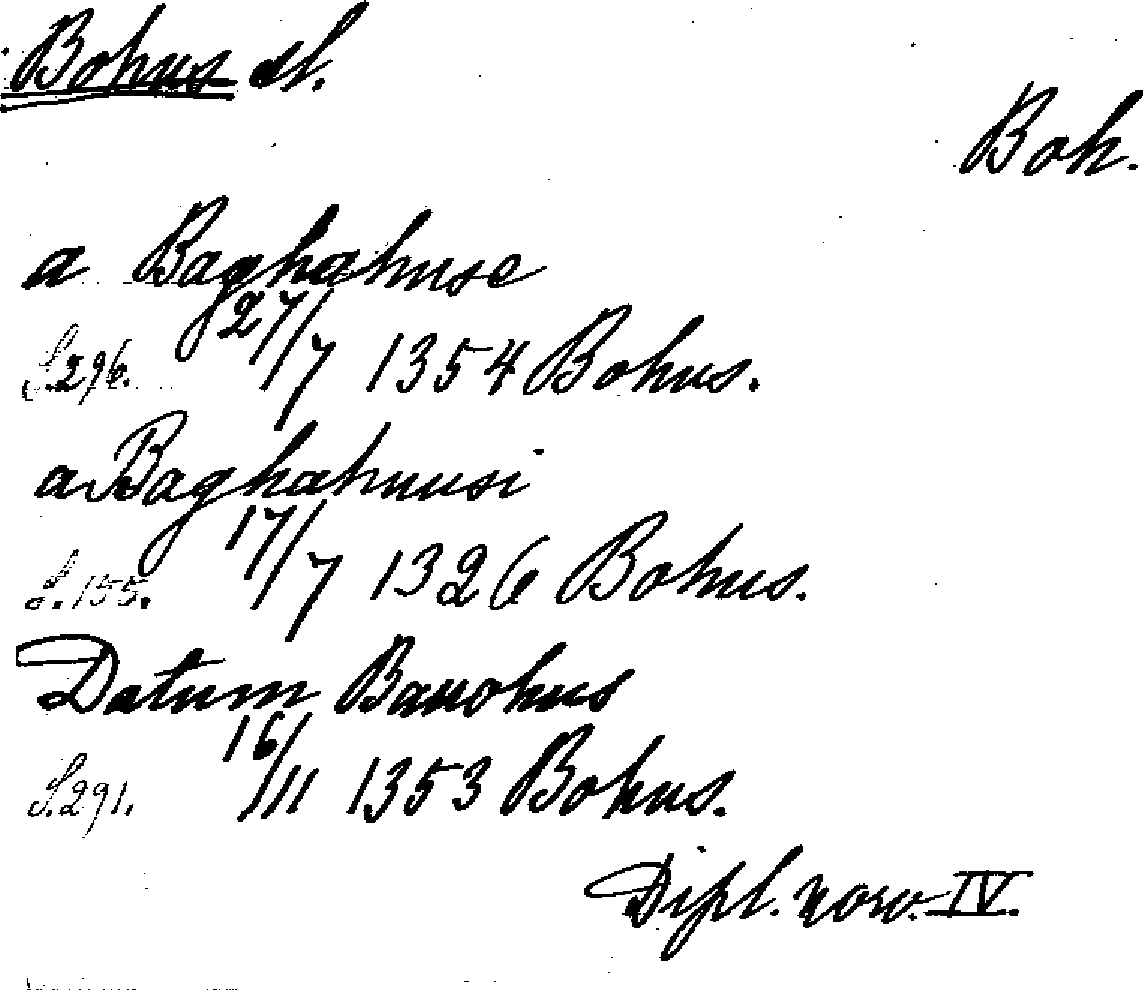 Bohus sl.
Boh.
a Baghahuse
S.296. 27/7 1354 Bohus.
a Baghahuusi
S.155. 17/7 1326 Bohus.
Datum Bauohus
S.291. 16/11 1353 Bohus.
Dipl. norv. IV.